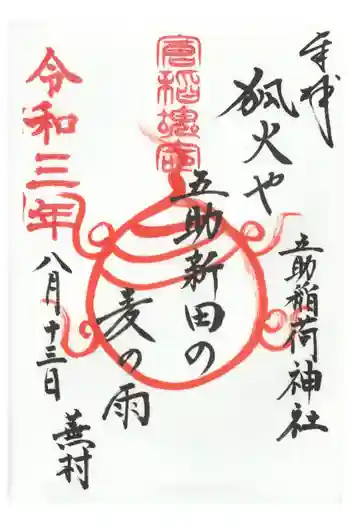 奉拝
狐火や
五助新田の
麦の雨
五助稲荷神社
令和三年
八月十三日
蕪村